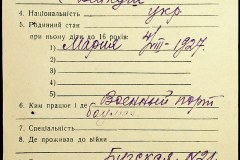 4. Національність укр
5. Родинний стан
при ньому діти до 16 років:
Мария 4/VIII-1927.
6. Ким працює і де Военный порт
7. Спеціяльність
8. Де проживав до війни
Бугская N21